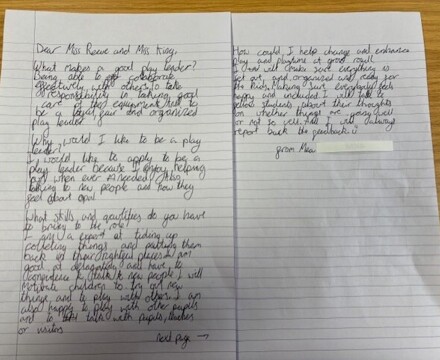 Dear Miss Reeve and Miss King,
What makes a good play leader?
Being able to collaborate
effectively with others. To take
responsibility in taking good
care of the equipment. Just to
be a loyal, fair and organized
play leader.
Why would I like to be a play
leader?
I would like to apply to be a
play leader because I enjoy helping
out when ever is needed. I like
talking to new people and how they
feel about opal
What skills and qualities do you have
to bring to the role?
I am a expert at tidying up
collecting things and putting them
back in their rightful places. I am
good at delegating and have to
communicate & (talk) to new people. I will
motivate children to try out new
things and to play with others. I am
also happy to play with other pupils
and to talk with pupils, teachers
or visitors
next page →
How could I help change and enhance
play and playtime at
I and will make sure everything is
set out and organised well ready for
the kids. Making sure everybody feels
happy and included. I will talk to
fellow students about their thoughts
on whether things are going well
or not so well and I will always
report back the feedback.
from Mia